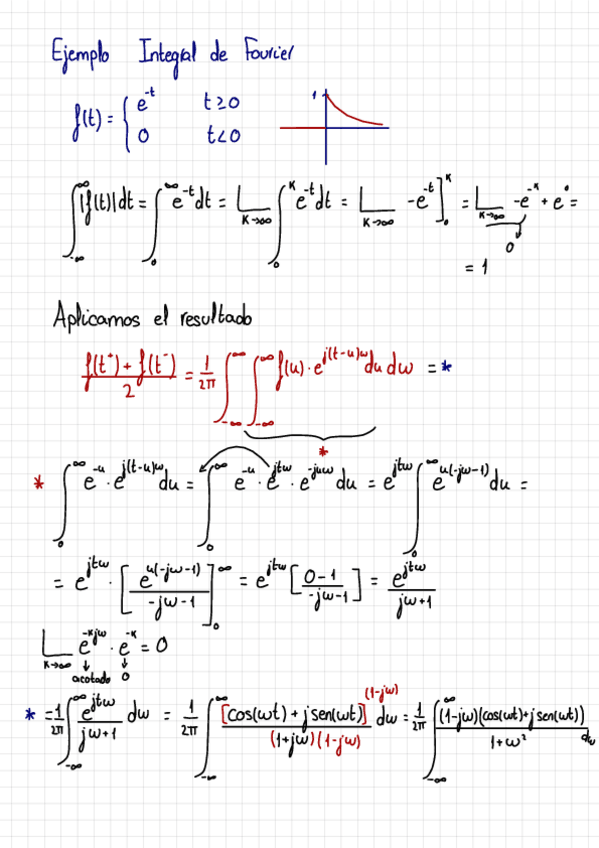 Ejemplo Integral de Fourier
f(t) = { e^-t t≥0
0 t<0
1
∫_-∞^∞ |f(t)|dt = ∫_0^∞ e^-t dt = L_{K→∞} ∫_0^K e^-t dt = L_{K→∞} -e^-t]_0^K = L_{K→∞} -e^-K + e^0 =
0
= 1
Aplicamos el resultado
(f(t⁺) + f(t⁻))/2 = 1/2π ∫_-∞^∞ ∫_-∞^∞ f(u)·e^{j(t-u)ω} du dω = *
*
* ∫_0^∞ e^-u · e^{j(t-u)ω} du = ∫_0^∞ e^-u · e^{jtω} · e^{-juω} du = e^{jtω} ∫_0^∞ e^{u(-jω-1)} du =
= e^{jtω} · [e^{u(-jω-1)}/(-jω-1)]_0^∞ = e^{jtω} [(0-1)/(-jω-1)] = e^{jtω}/(jω+1)
L_{K→∞} e^{-Kjω} · e^-K = 0
acotado 0
* = 1/2π ∫_-∞^∞ e^{jtω}/(jω+1) dω = 1/2π ∫_-∞^∞ [cos(ωt) + j sen(ωt)](1-jω)/((1+jω)(1-jω)) dω = 1/2π ∫_-∞^∞ (1-jω)(cos(ωt)+j sen(ωt))/(1+ω²) dω